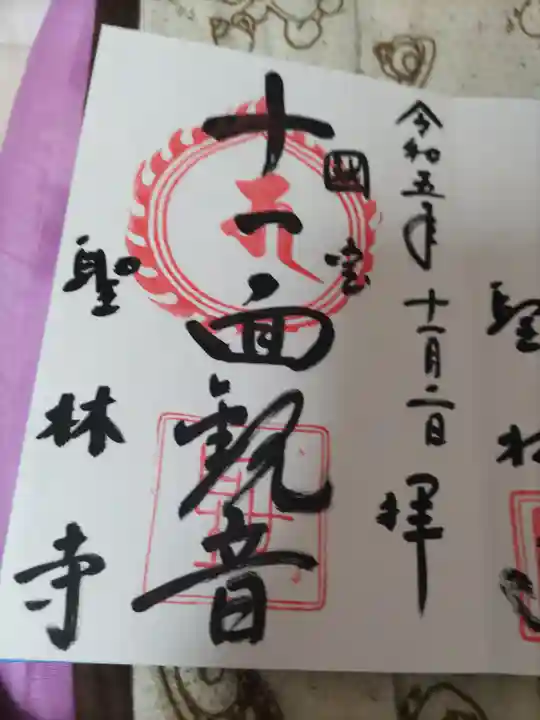 聖林
令和五年十一月二日拝
國宝
十一面観音
聖林寺